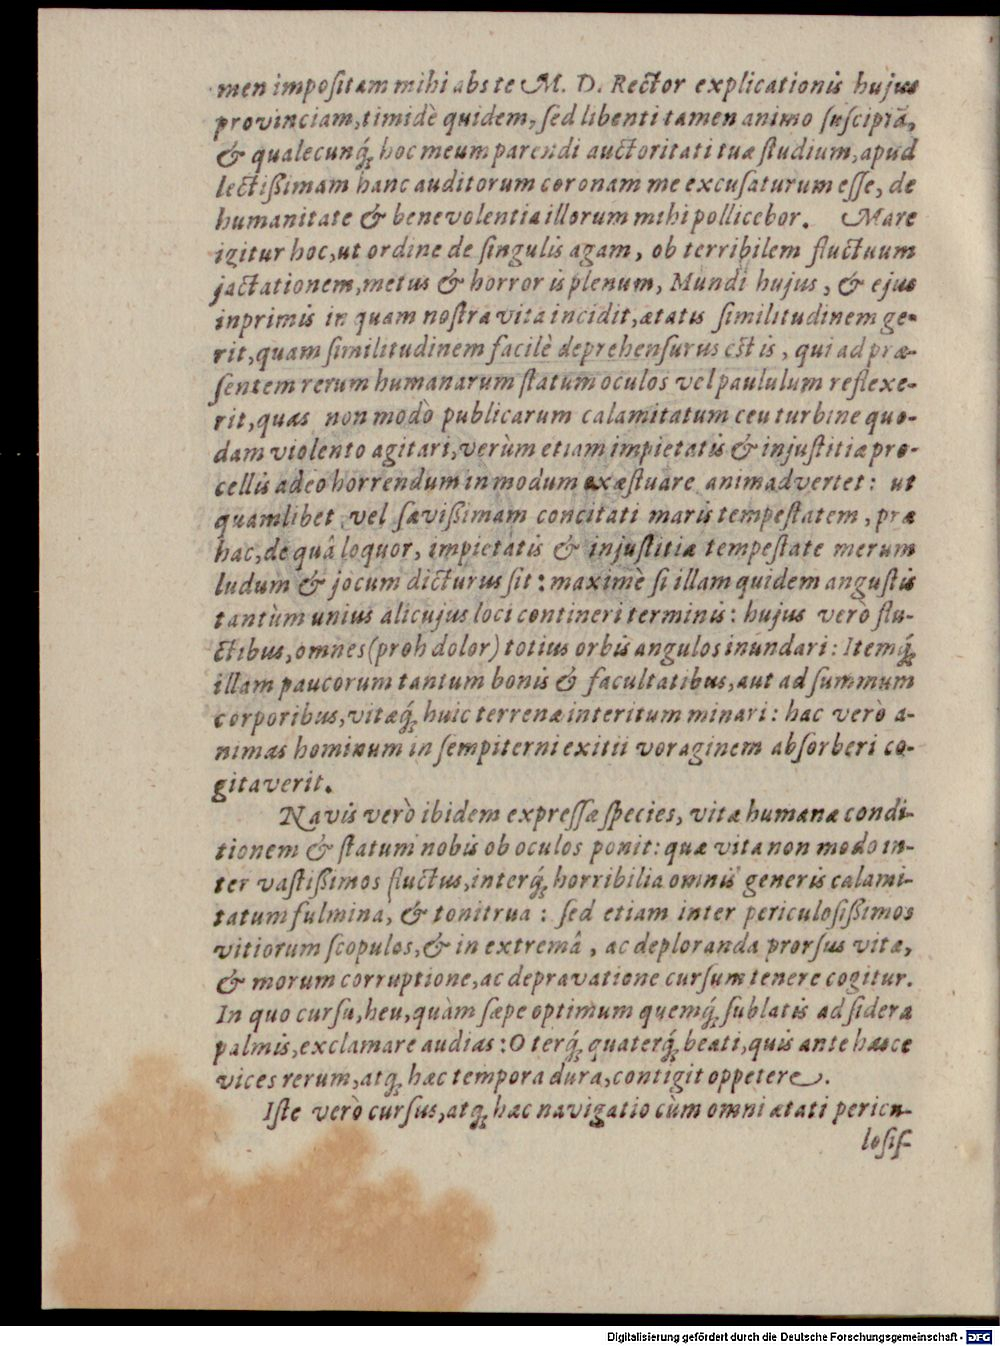 men impoſitam mihi abs te M. D. Rector explicationis hujus
provinciam, timidè quidem, ſed libenti tamen animo ſuſcipiā,
& qualecunq́; hoc meum parendi auctoritati tuæ ſtudium, apud
lectißimam hanc auditorum coronam me excuſaturum eſſe, de
humanitate & benevolentia illorum mihi pollicebor. Mare
igitur hoc, ut ordine de ſingulis agam, ob terribilem fluctuum
jactationem, metus & horroris plenum, Mundi hujus, & ejus
inprimis in quam noſtra vita incidit, ætatis ſimilitudinem ge-
rit, quam ſimilitudinem facilè deprehenſurus est is, qui ad præ-
ſentem rerum humanarum ſtatum oculos vel paululum reflexe-
rit, quas non modò publicarum calamitatum ceu turbine quo-
dam violento agitari, verùm etiam impietatis & injuſtitiæ pro-
cellis adeo horrendum in modum exæſtuare animadvertet: ut
quamlibet vel ſævißimam concitati maris tempeſtatem, præ
hac, de quâ loquor, impietatis & injuſtitiæ tempeſtate merum
ludum & jocum dicturus ſit: maximè ſi illam quidem anguſtis
tantùm unius alicujus loci contineri terminis: hujus verò flu-
ctibus, omnes (proh dolor) totius orbis angulos inundari: Itemq́;
illam paucorum tantum bonis & facultatibus, aut ad ſummum
corporibus, vitæq́; huic terrenæ interitum minari: hac verò a-
nimas hominum in ſempiterni exitii voraginem abſorberi co-
gitaverit.
Navis verò ibidem expreſſæ ſpecies, vitæ humanæ condi-
tionem & ſtatum nobis ob oculos ponit: quæ vita non modo in-
ter vaſtißimos fluctus, interq́; horribilia omnis generis calami-
tatum fulmina, & tonitrua: ſed etiam inter periculoſißimos
vitiorum ſcopulos, & in extremâ, ac deploranda prorſus vitæ,
& morum corruptione, ac depravatione curſum tenere cogitur.
In quo curſu, heu, quàm ſæpe optimum quemq́; ſublatis ad ſidera
palmis, exclamare audias: O terq́; quaterq́; beati, quis ante haſce
vices rerum, atq; hæc tempora dura, contigit oppetere.
Iſte verò curſus, atq; hæc navigatio cùm omni ætati pericu-
loſiſ-
Digitalisierung gefördert durch die Deutsche Forschungsgemeinschaft - DFG